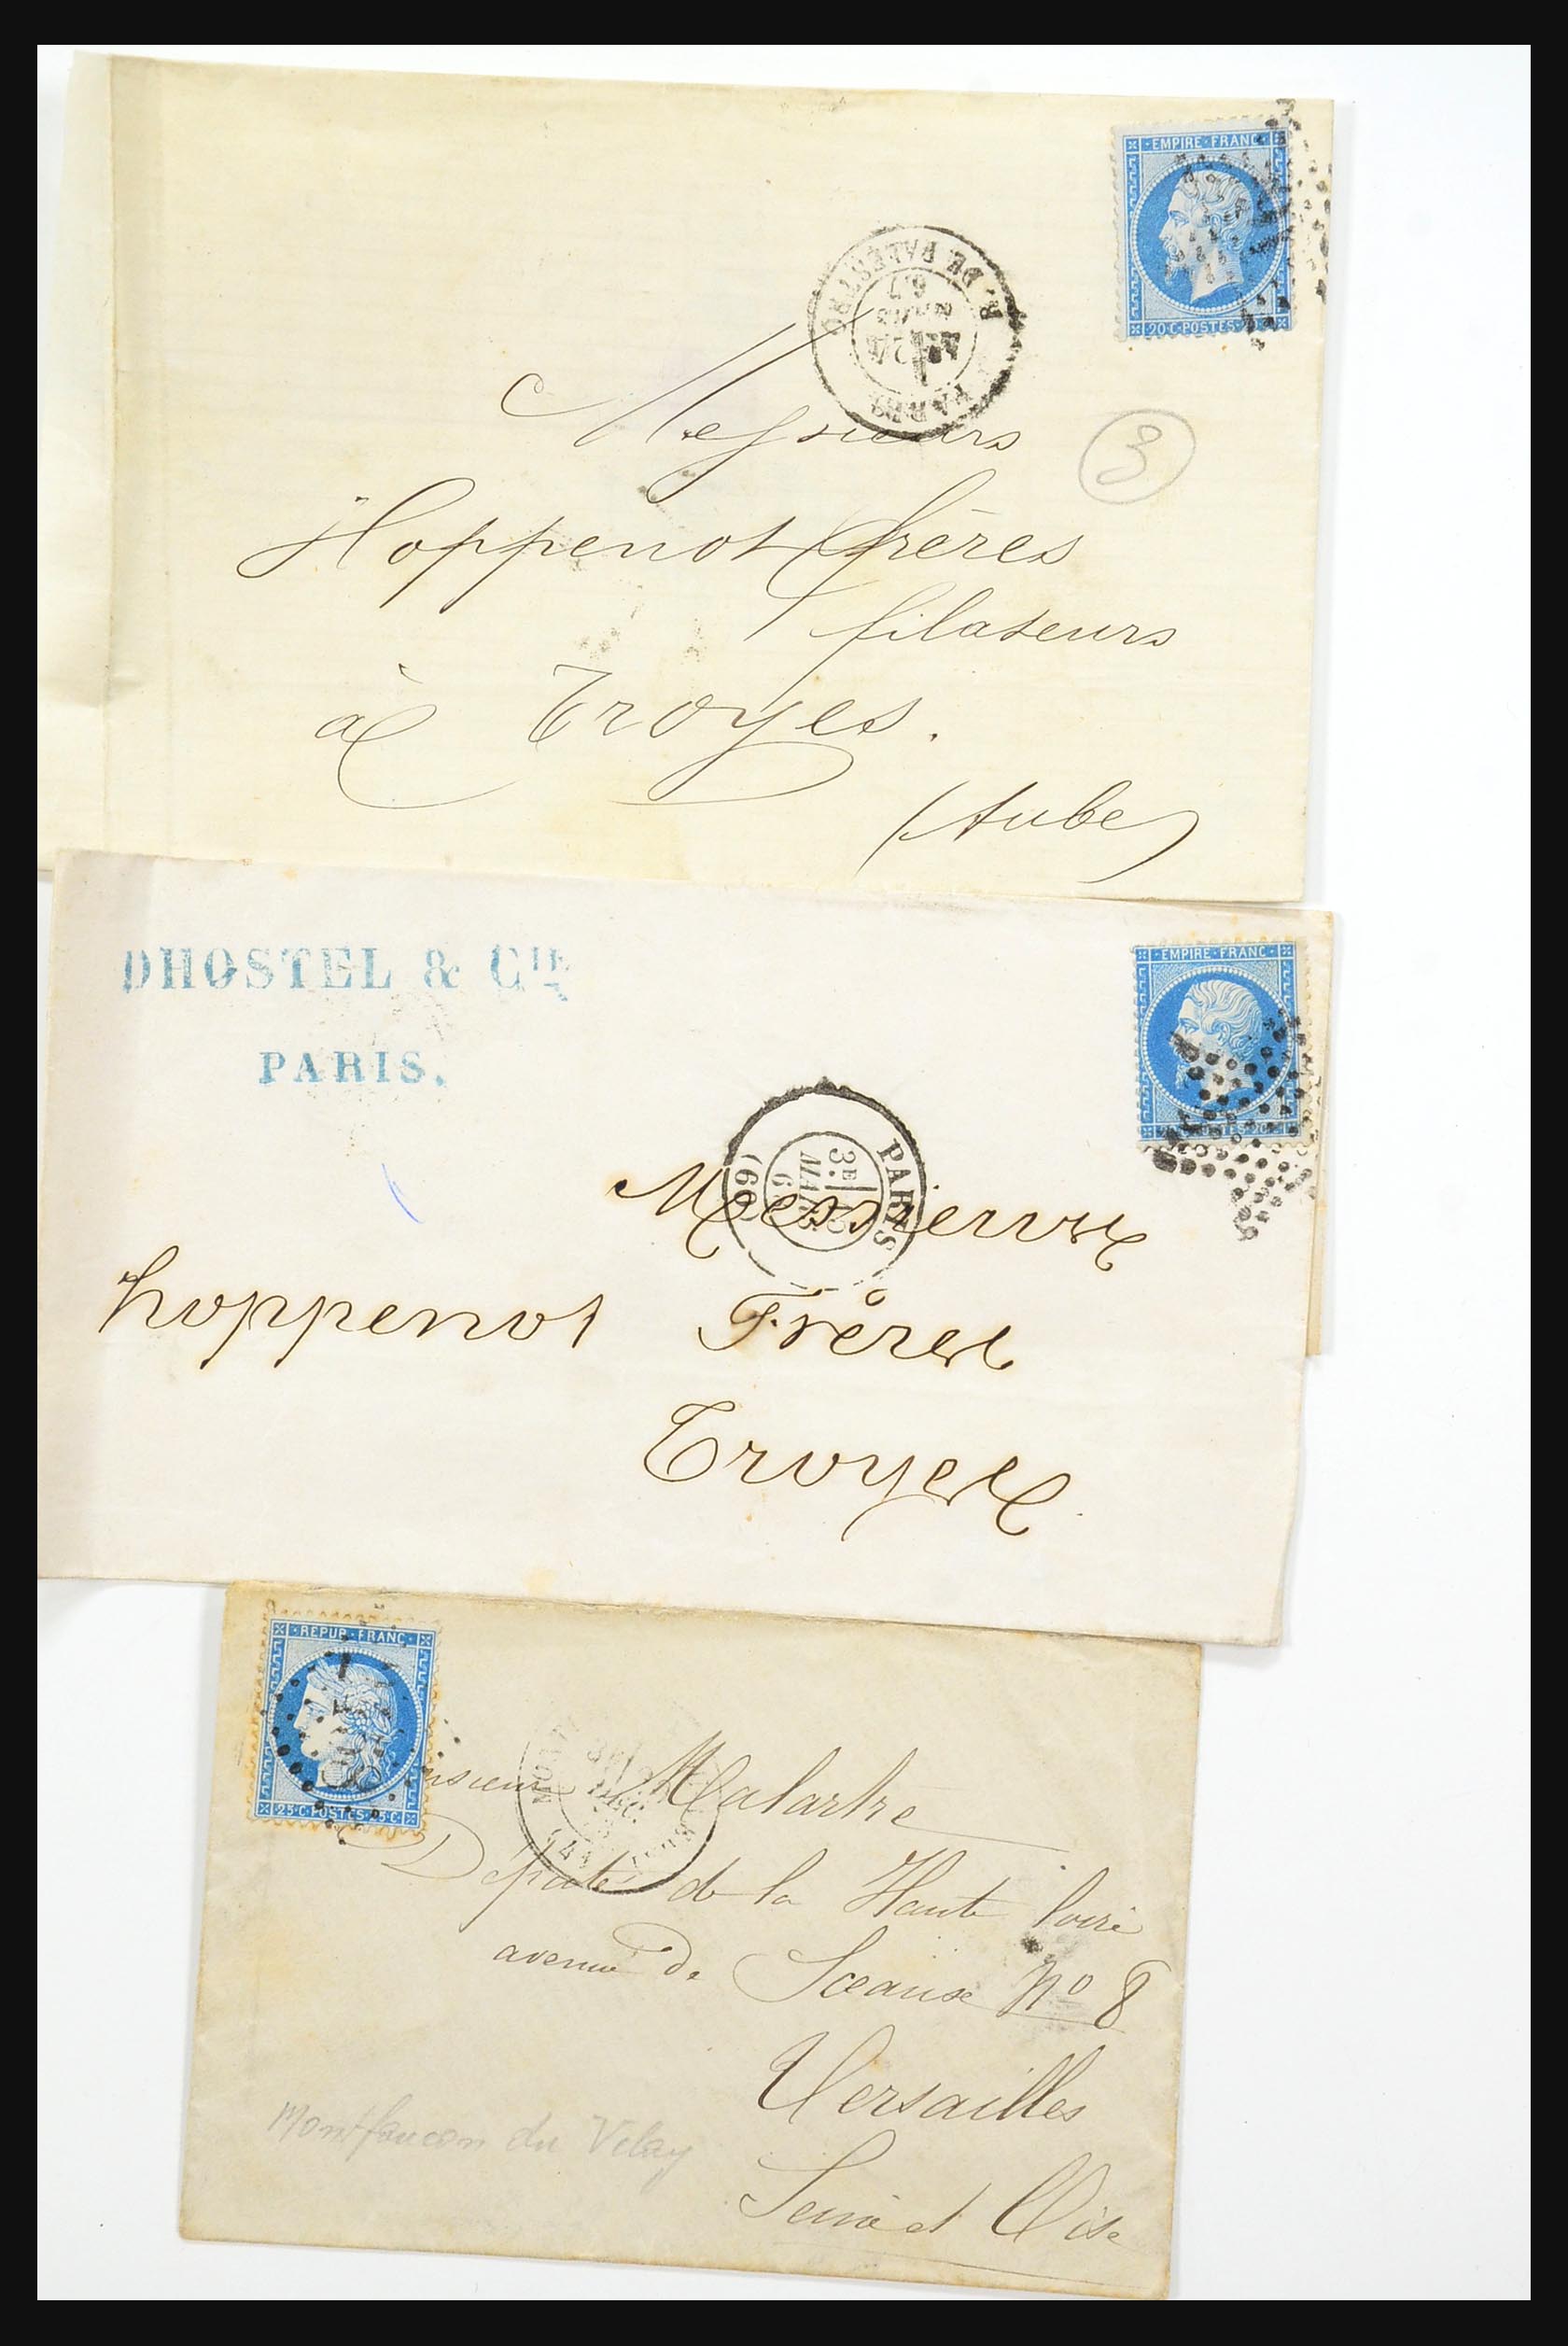 EMPIRE·FRANC
20·C·POSTES·20·C
R. DE PALESTRO
PARIS
67
Messieurs
3
Hoppenot frères
filateurs
à Troyes.
(Aube)
DHOSTEL & CIE
PARIS.
EMPIRE·FRANC·
PARIS
3E
MARS
(60)
Messieurs
hoppenot Frères
Troyes
REPUB·FRANC·
25·C·POSTES·25·C·
Malartre
Député de la Haute Loire
avenue de Sceaux No 8
Versailles
Seine et Oise
Montfaucon du Velay